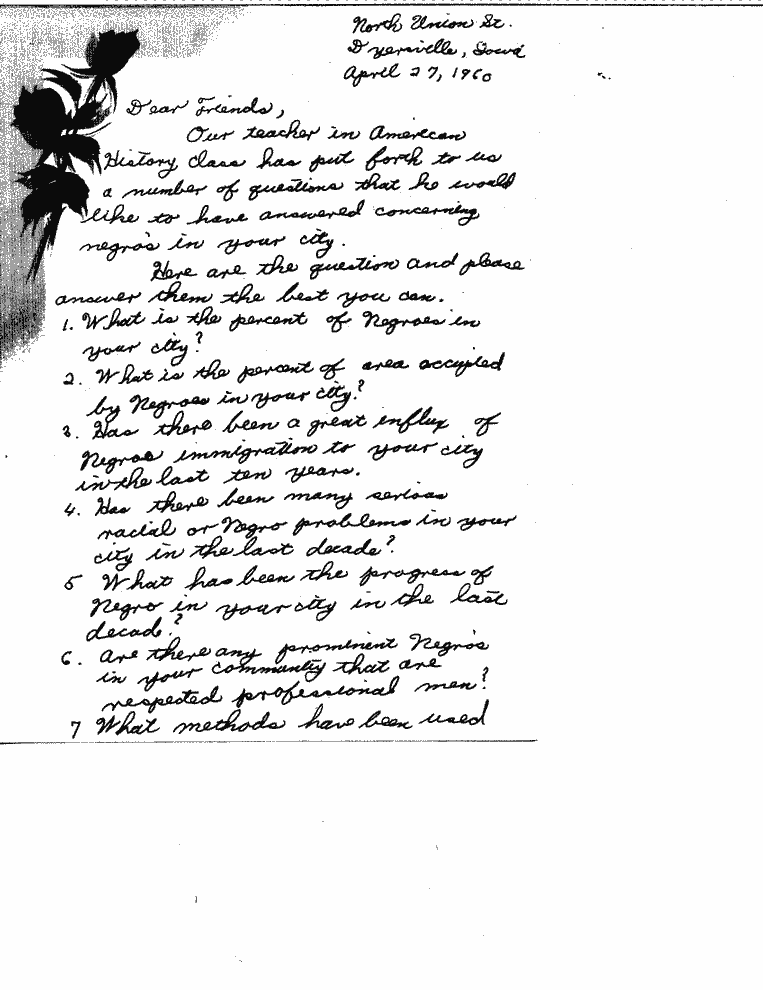 North Union St.
Dyersville, Iowa
April 27, 1960
Dear Friends,
Our teacher in American
History class has put forth to us
a number of questions that he would
like to have answered concerning
negro's in your city.
Here are the question and please
answer them the best you can.
1. What is the percent of Negroes in
your city?
2. What is the percent of area occupied
by Negroes in your city?
3. Has there been a great influx of
Negroe immigration to your city
in the last ten years.
4. Has there been many serious
racial or Negro problems in your
city in the last decade?
5 What has been the progress of
Negro in your city in the last
decad?
6. Are there any prominent Negro's
in your community that are
respected professional men?
7 What methods have been used